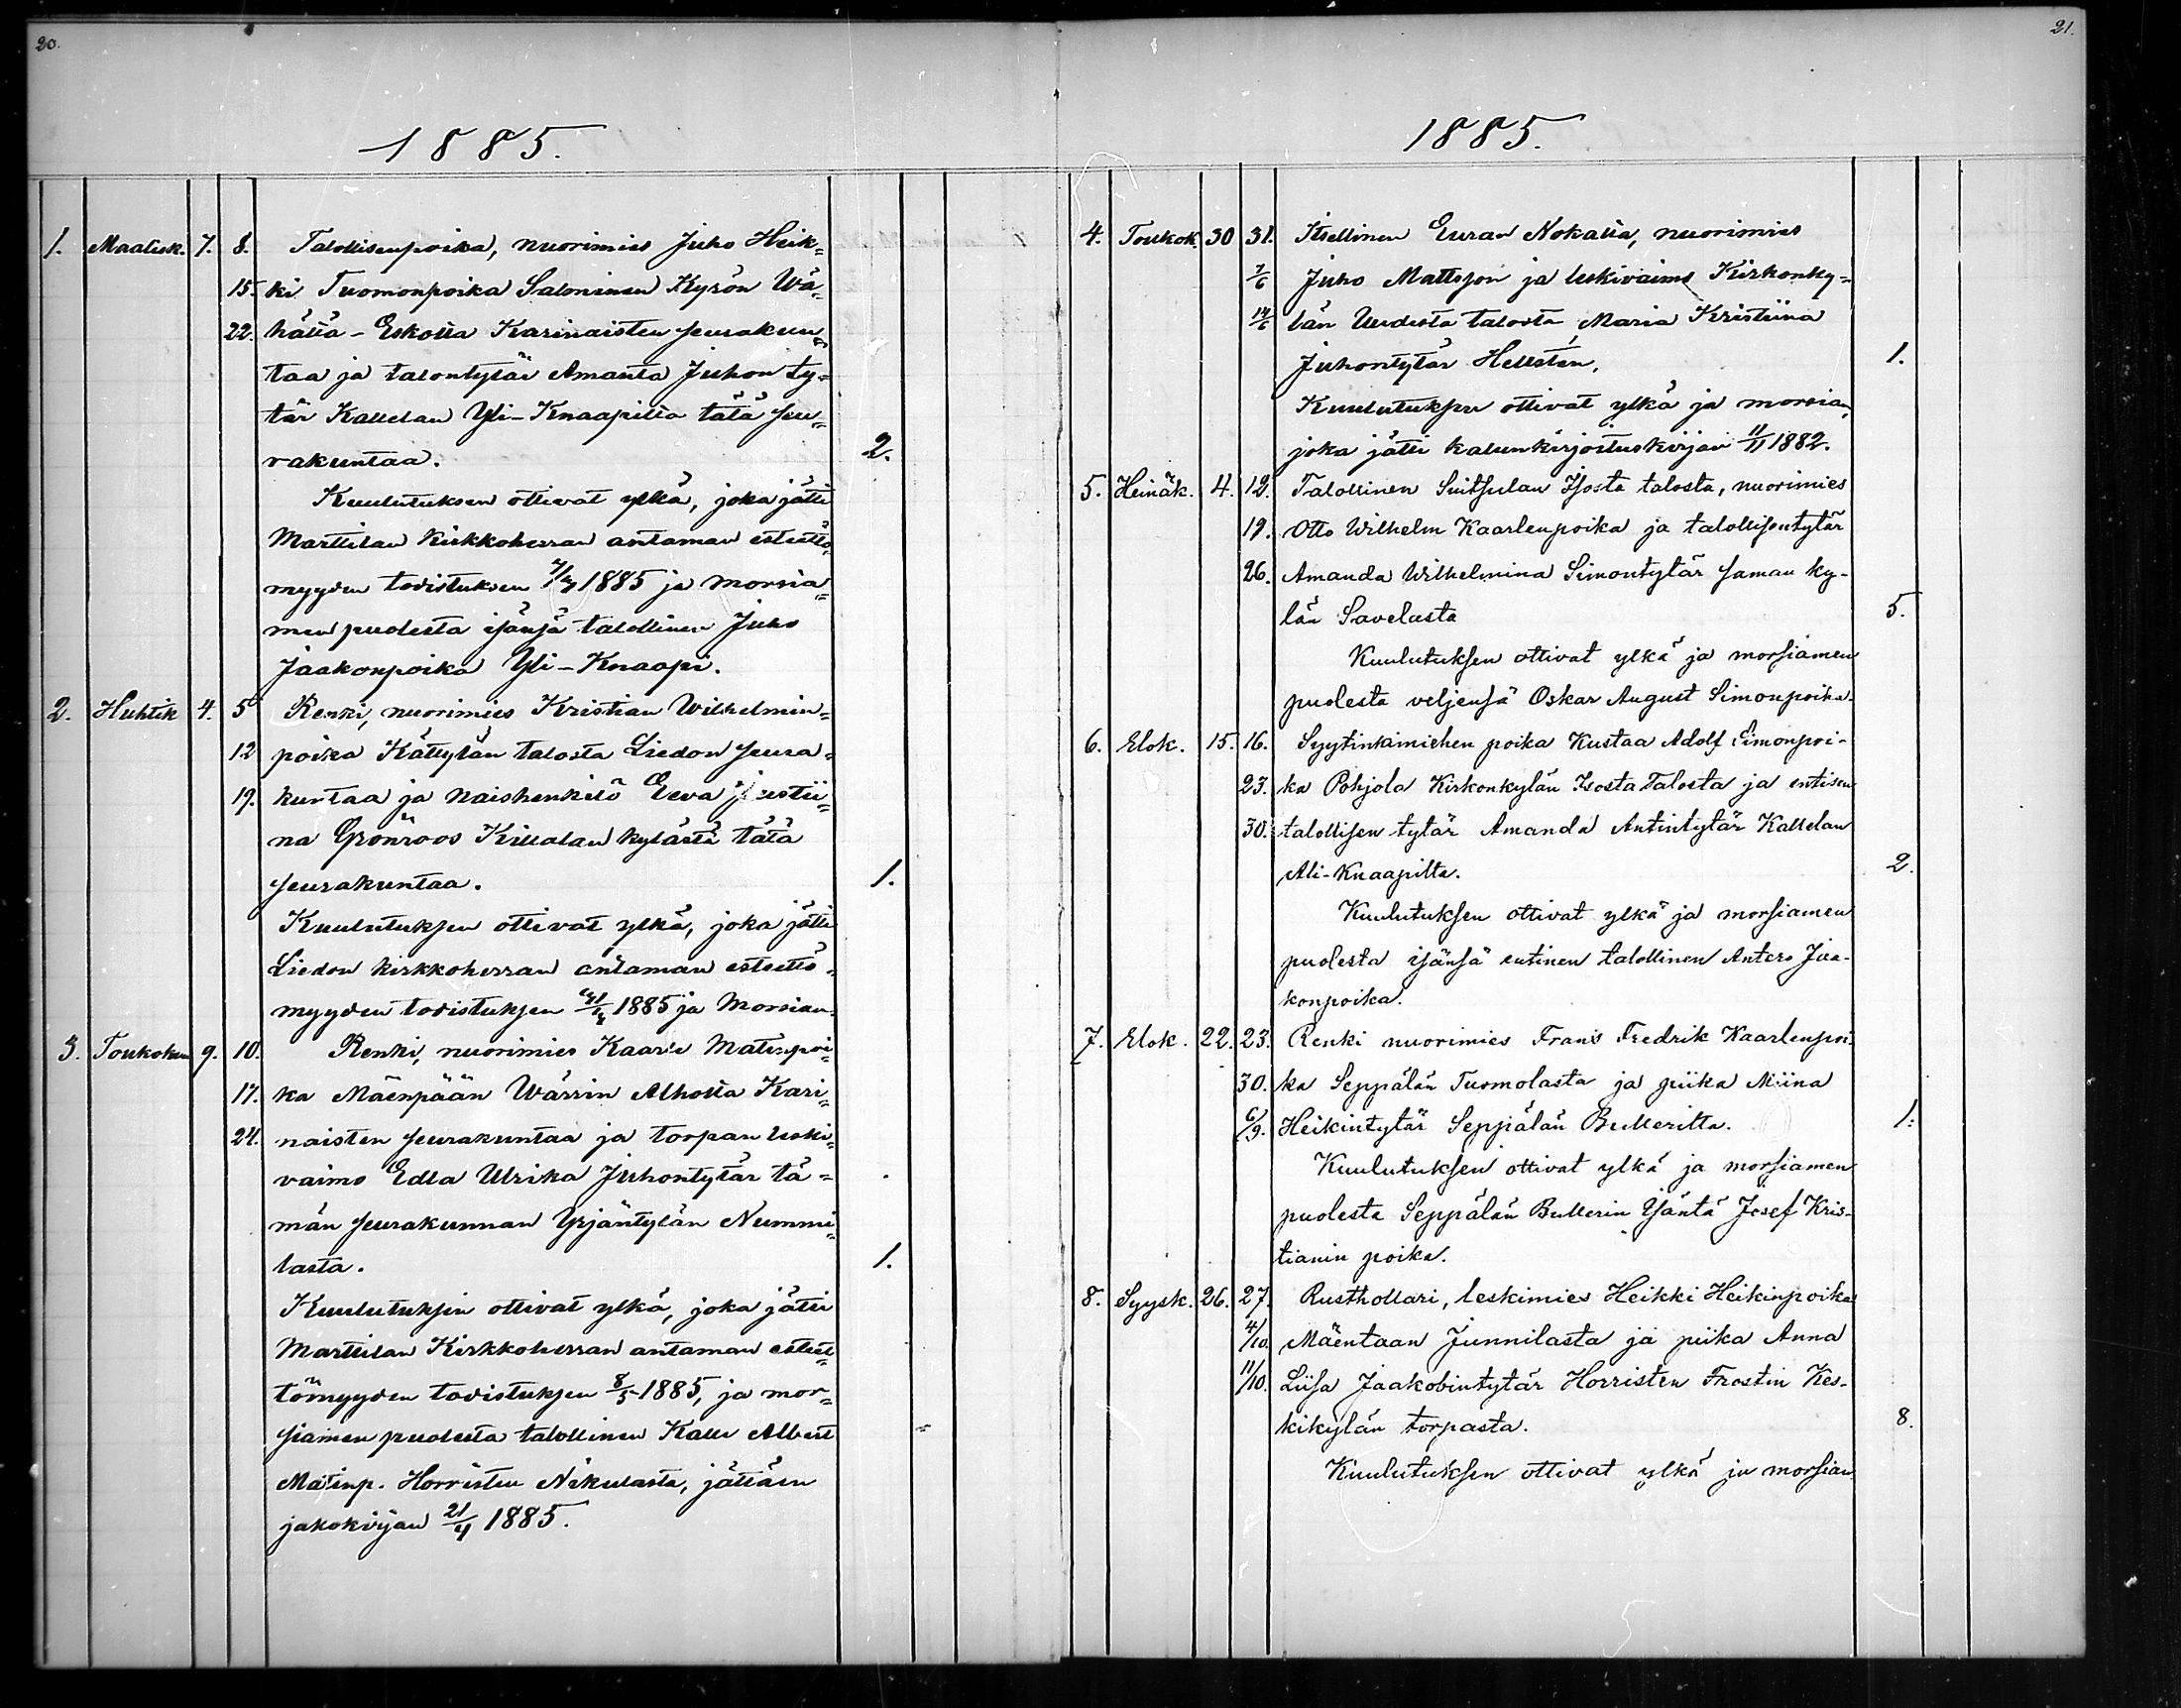 20.
1885.
1. Maalisk. 7. 8. Talollisenpoika, nuorimies Juho Heik=
15. ki Tuomonpoika Saloninen Kyrön Wä=
22. hältä-Eskolta Karinaisten seurakun=
taa ja talontytär Amanta Juhon ty=
tär Kallelan Yli-Knaapilta tätä seu=
rakuntaa. 2.
Kuulutuksen ottivat ylkä, joka jätti
Marttilan kirkkoherran antaman esteettö=
myyden todistuksen 1885 ja morsia=
men puolesta isänsä talollinen Juho
Jaakonpoika Yli-Knaapi.
2. Huhtik 4. 5 Renki, nuorimies Kristian Wilhelmin=
12 poika Kättylän talosta Liedon seura=
19. kuntaa ja naishenkilö Eeva Justii=
na Grönroos Killalan kylästä tätä
seurakuntaa. 1.
Kuulutuksen ottivat ylkä, joka jätti
Liedon kirkkoherran antaman esteettö=
myyden todistuksen 1885 ja Morsian.
3. Toukokuu 9. 10. Renki, nuorimies Kaarle Matinpoi=
17. ka Mäenpään Wärrin Alholta Kari=
24. naisten seurakuntaa ja torpan leski=
vaimo Edla Ulrika Juhontytär tä=
män seurakunnan Yrjäntylän Nummi=
lasta. 1.
Kuulutuksin ottivat ylkä, joka jätti
Marttilan Kirkkoherran antaman esteet=
tömyyden todistuksen 8/5 1885, ja mor=
siamen puolesta talollinen Kalle Albert
Matinp. Horristen Nikulasta, jättäen
jakokirjan 21/4 1885.
21.
1885.
4. Toukok. 30 31. Itsellinen Euran Nokalta, nuorimies
7/6 Juho Mattsson ja leskivaimo Kirkonky=
14/6 län Uudesta talosta Maria Kristiina
Juhontytär Hellsten. 1.
Kuulutuksen ottivat ylkä ja morsian,
joka jätti kalunkirjoituskirjan 11/11 1882.
5. Heinäk. 4. 12. Talollinen Suitsulan Isosta talosta, nuorimies
19. Otto Wilhelm Kaarlenpoika ja talollisentytär
26. Amanda Wilhelmina Simontytär saman ky-
län Savelasta 5.
Kuulutuksen ottivat ylkä ja morsiamen
puolesta veljensä Oskar August Simonpoika.
6. Elok. 15. 16. Syytinkimiehen poika Kustaa Adolf Simonpoi-
23. ka Pohjola Kirkonkylän Isosta Talosta ja entisen
30. talollisen tytär Amanda Antintytär Kallelan
Ali-Knaapilta. 2.
Kuulutuksen ottivat ylkä ja morsiamen
puolesta isänsä entinen talollinen Antero Jaa-
konpoika.
7. Elok. 22. 23. Renki nuorimies Frans Fredrik Kaarlenpoi-
30. ka Seppälän Tuomolasta ja piika Miina
6/9. Heikintytär Seppälän Bullerilta. 1.
Kuulutuksen ottivat ylkä ja morsiamen
puolesta Seppälän Bullerin Isäntä Josef Kris-
tianin poika.
8. Syysk. 26. 27. Rusthollari, leskimies Heikki Heikinpoika
4/10. Mäentaan Junnilasta ja piika Anna
11/10. Liisa Jaakobintytär Horristen Frostin Kes-
kikylän torpasta. 8.
Kuulutuksen ottivat ylkä ja morsian